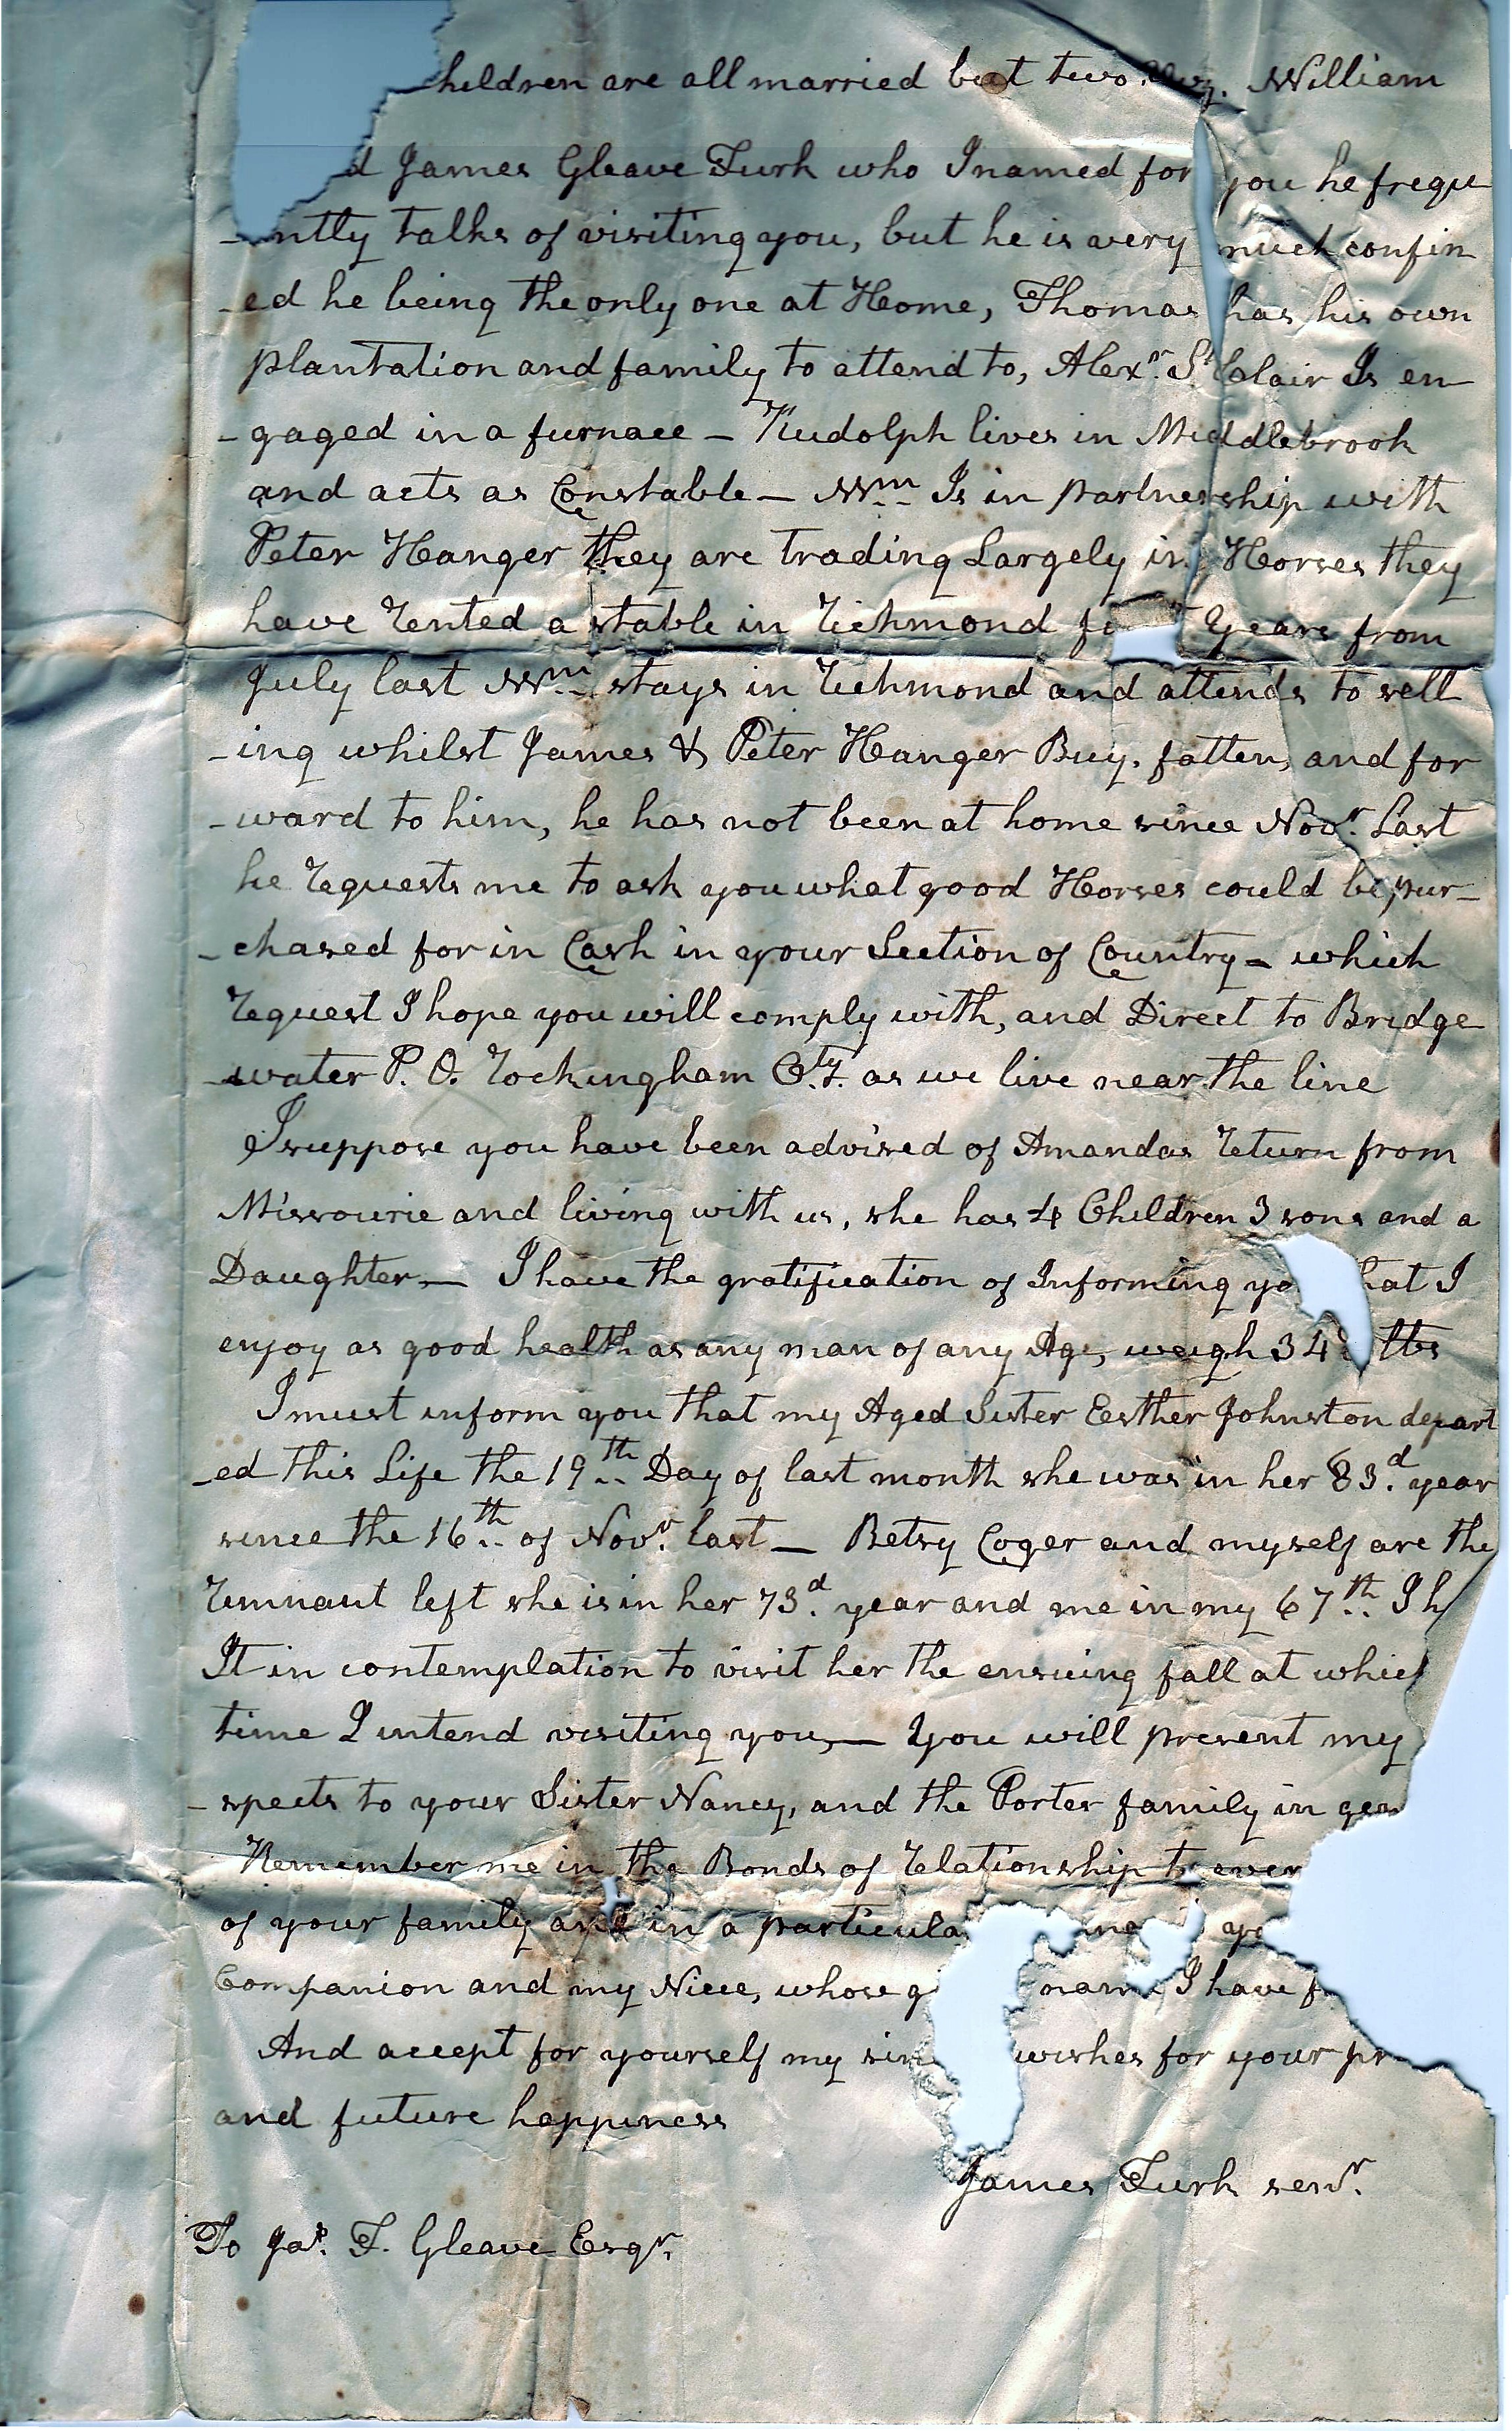 hildren are all married but two viz. William
d James Gleave Turk who I named for you he frequ
ntly talks of visiting you, but he is very much confin
-ed he being the only one at Home, Thomas has his own
plantation and family to attend to, Alexr. St Clair Is en
-gaged in a furnace – Rudolph lives in Middlebrook
and acts as Constable – Wm Is in partnership with
Peter Hanger they are trading Largely in Horses they
have rented a stable in Richmond Years from
July last Wm stays in Richmond and attends to sell
-ing whilst James & Peter Hanger Buy, fatten, and for
-ward to him, he has not been at home since Novr. Last
he requests me to ask you what good Horses could be pur-
-chased for in Cash in your Section of Country – which
request I hope you will comply with, and Direct to Bridge
-water P. O. Rockingham Cty. as we live near the line
I suppose you have been advised of Amandas return from
Missourie and living with us, she has 4 Children 3 sons and a
Daughter – I have the gratification of Informing yo hat I
enjoy as good health as any man of any Age, weigh 34 lbs
I must inform you that my Aged Sister Eesther Johnston depart
-ed this Life the 19th Day of last month she was in her 83d. year
since the 16th of Novr. last – Betsy Coger and myself are the
remnant left she is in her 73d. year and me in my 67th. I h
It in contemplation to visit her the ensuing fall at whic
time I intend visiting you, – You will present my
-spects to your Sister Nancy, and the Porter family in gen
Remember me in the Bonds of relationship to ever
of your family and in a particula yo
Companion and my Niece, whose g name I have f
And accept for yourself my sin wishes for your pr
and future happiness
James Turk senr.
To Jas. T. Gleave Esqr.